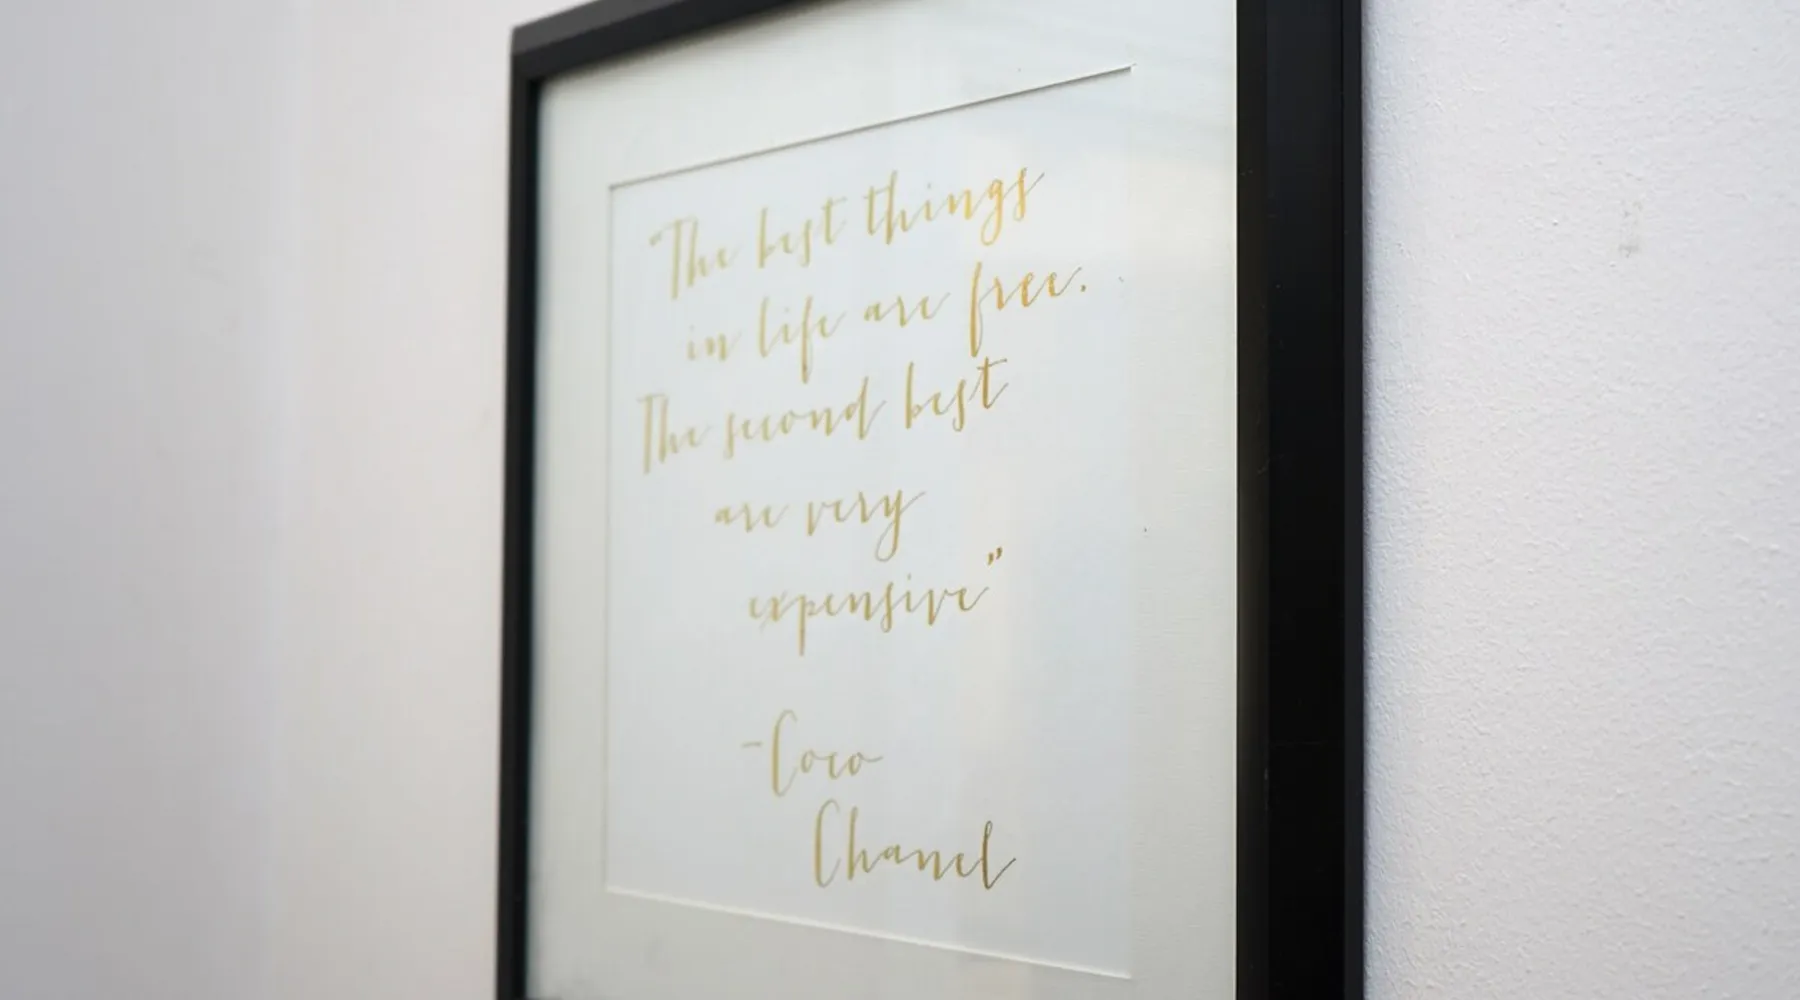 “The best things
in life are free.
The second best
are very
expensive”
-Coco
Chanel